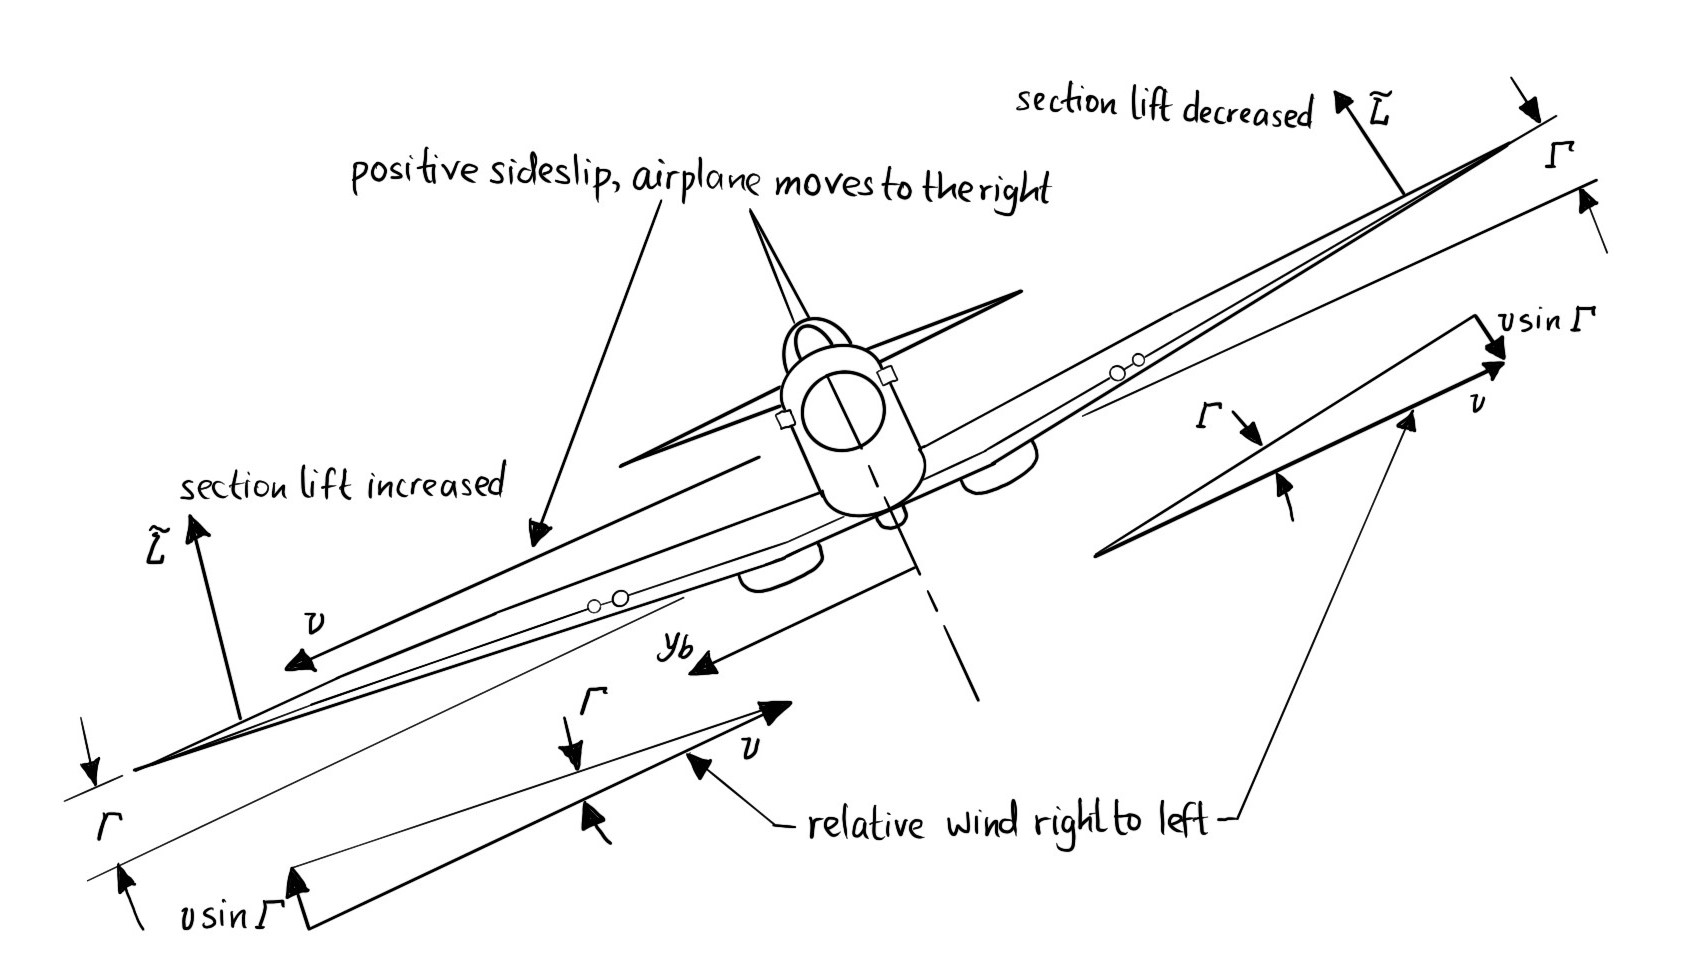 section lift decreased
L̃
Γ
positive sideslip, airplane moves to the right
υ sin Γ
Γ
υ
section lift increased
L̃
υ
y_b
Γ
υ
relative wind right to left
Γ
υ sin Γ